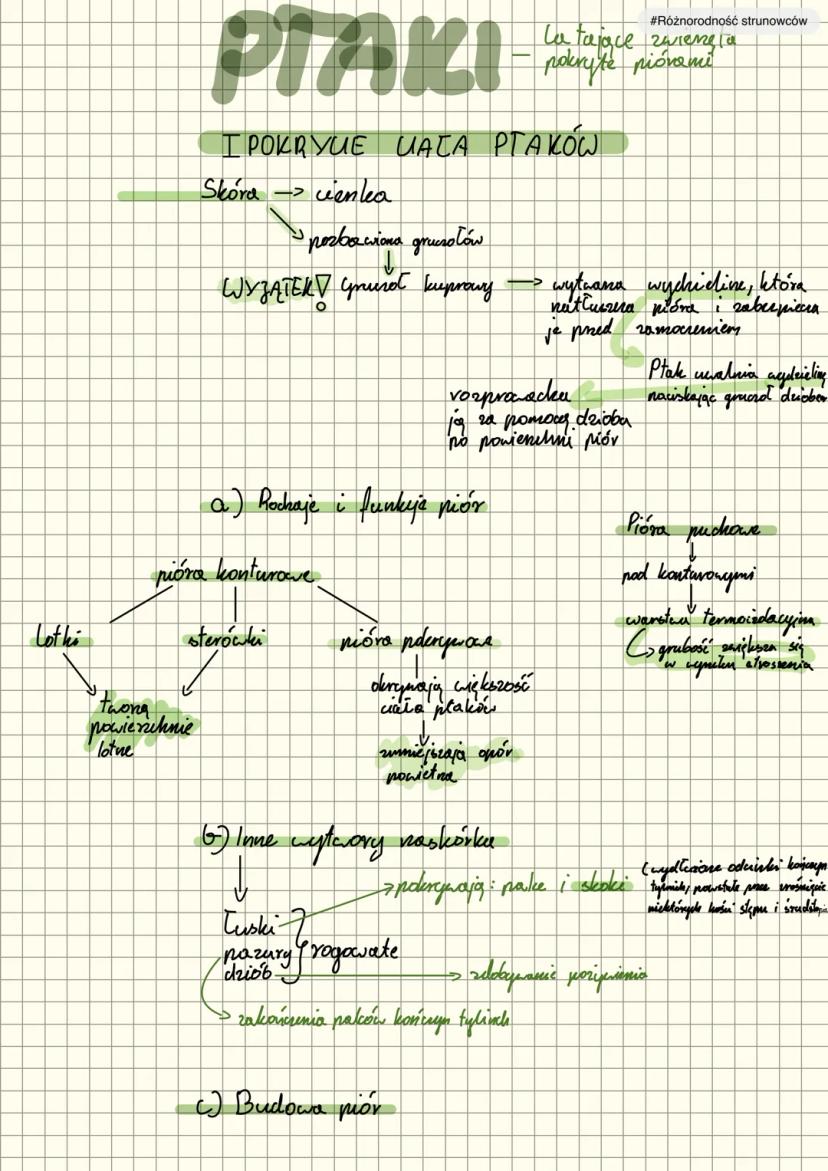 #Różnorodność strunowców
PTAKI – Latające zwierzęta
pokryte piórami
I POKRYCIE CIAŁA PTAKÓW
Skóra → cienka
pozbawiona gruczołów
WYJĄTEK! Gruczoł kuprowy → wytwarza wydzielinę, która
natłuszcza pióra i zabezpiecza
je przed zamoczeniem
Ptak uwalnia wydzielinę
naciskając gruczoł dziobem
rozprowadza
ją za pomocą dzioba
po powierzchni piór
a) Rodzaje i funkcje piór
Pióra puchowe
pod konturowymi
warstwa termoizolacyjna
grubość zwiększa się
w wyniku stroszenia
pióra konturowe
lotki sterówki pióra pokrywowe
tworzą
powierzchnie
lotne
okrywają większość
ciała ptaków
zmniejszają opór
powietrza
b) Inne wytwory naskórka
pokrywają: palce i skoki (wydłużone odcinki kończyn
tylnich, powstałe przez zrośnięcie
niektórych kości stępu i śródstopia
Łuski
pazury } rogowate
dziób → zdobywanie pożywienia
zakończenia palców kończyn tylnich
c) Budowa piór